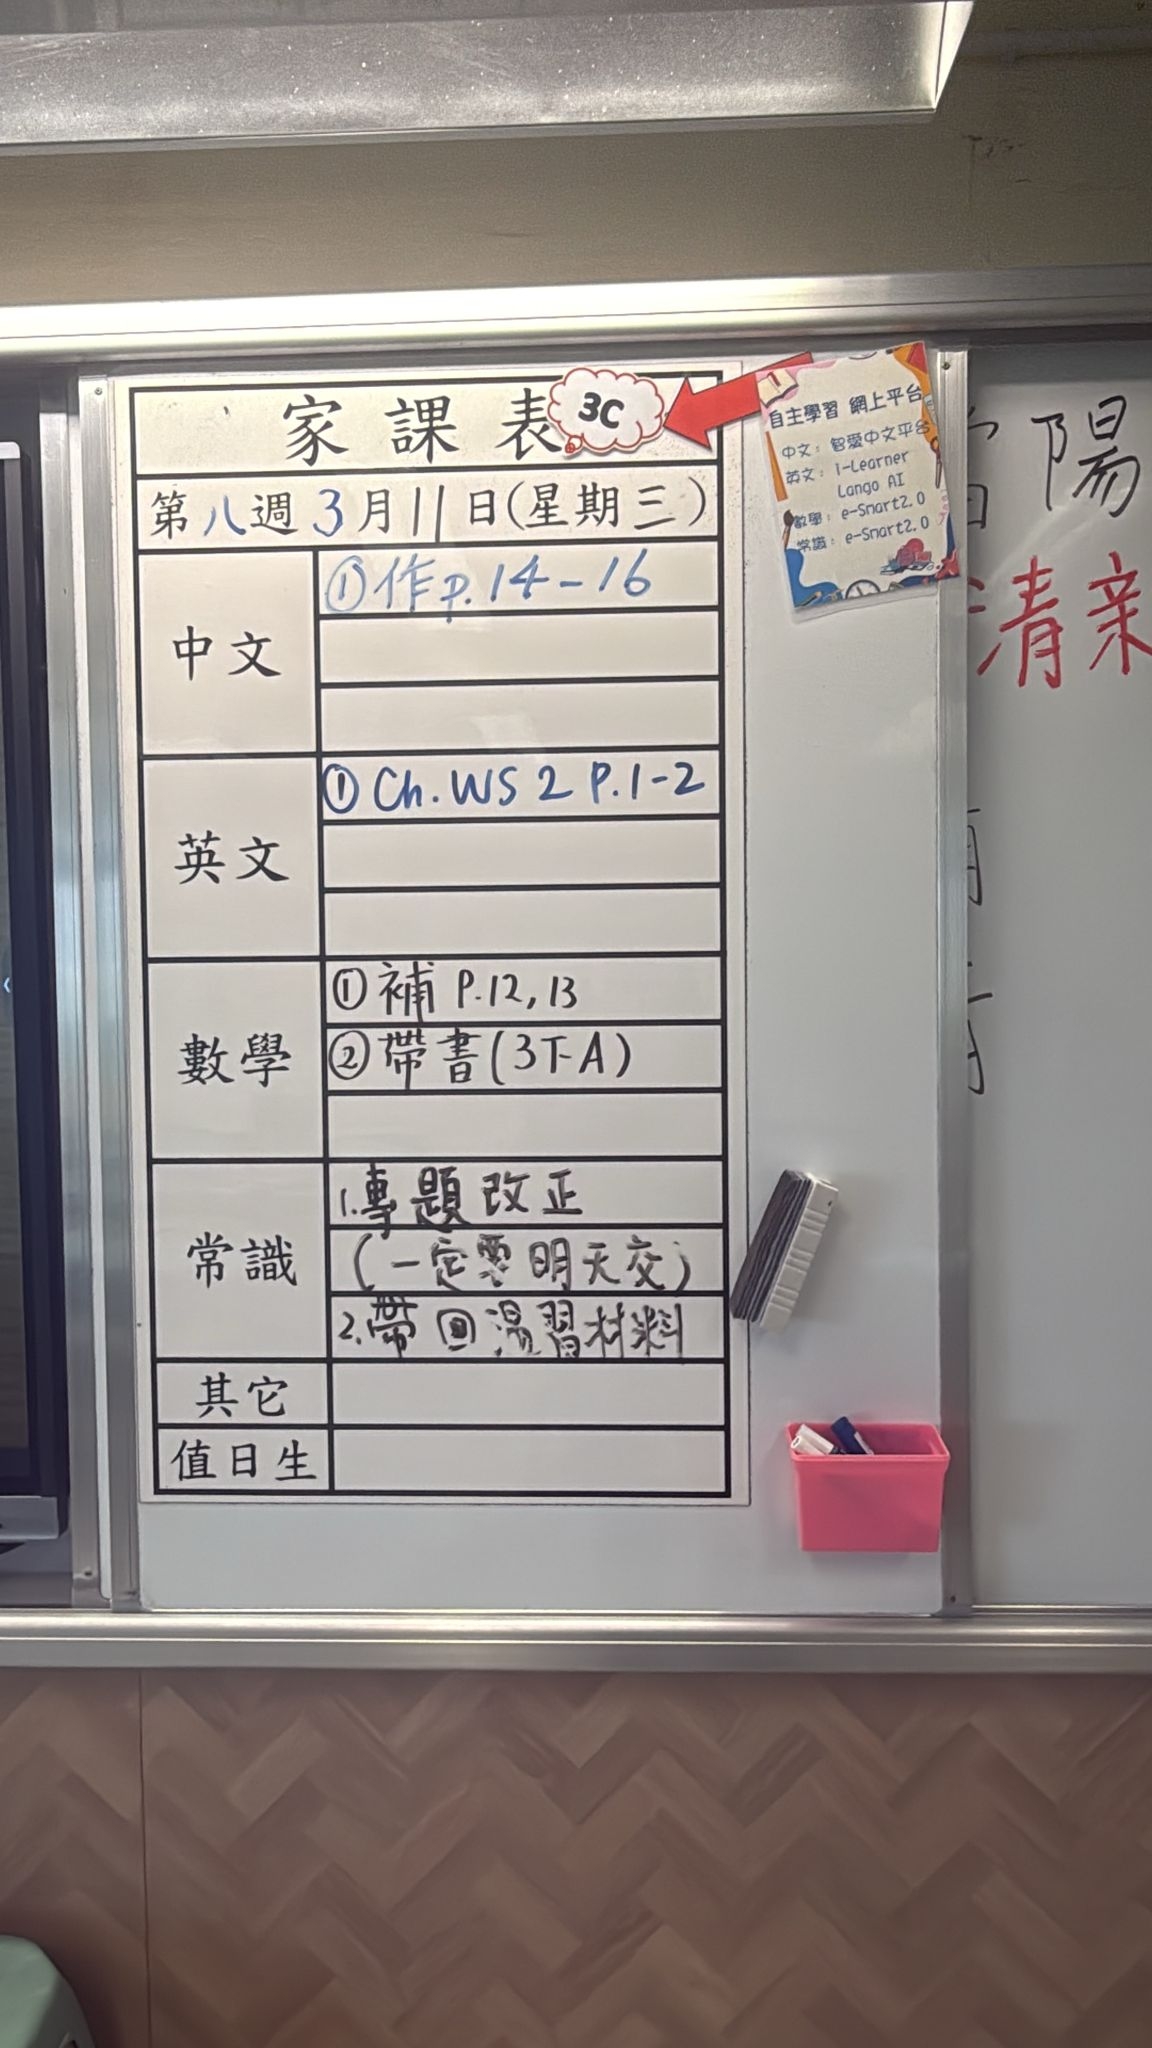 家課表 3C
第八週3月11日(星期三)
中文
①作p.14-16
英文
①Ch.WS 2 P.1-2
數學
①補 P.12,13
②帶書(3T-A)
常識
1.專題改正
(一定要明天交)
2.帶回溫習材料
其它
值日生
1
自主學習 網上平台
中文：智愛中文平台
英文：i-Learner
Lango AI
數學：e-Smart2.0
常識：e-Smart2.0
陽
清